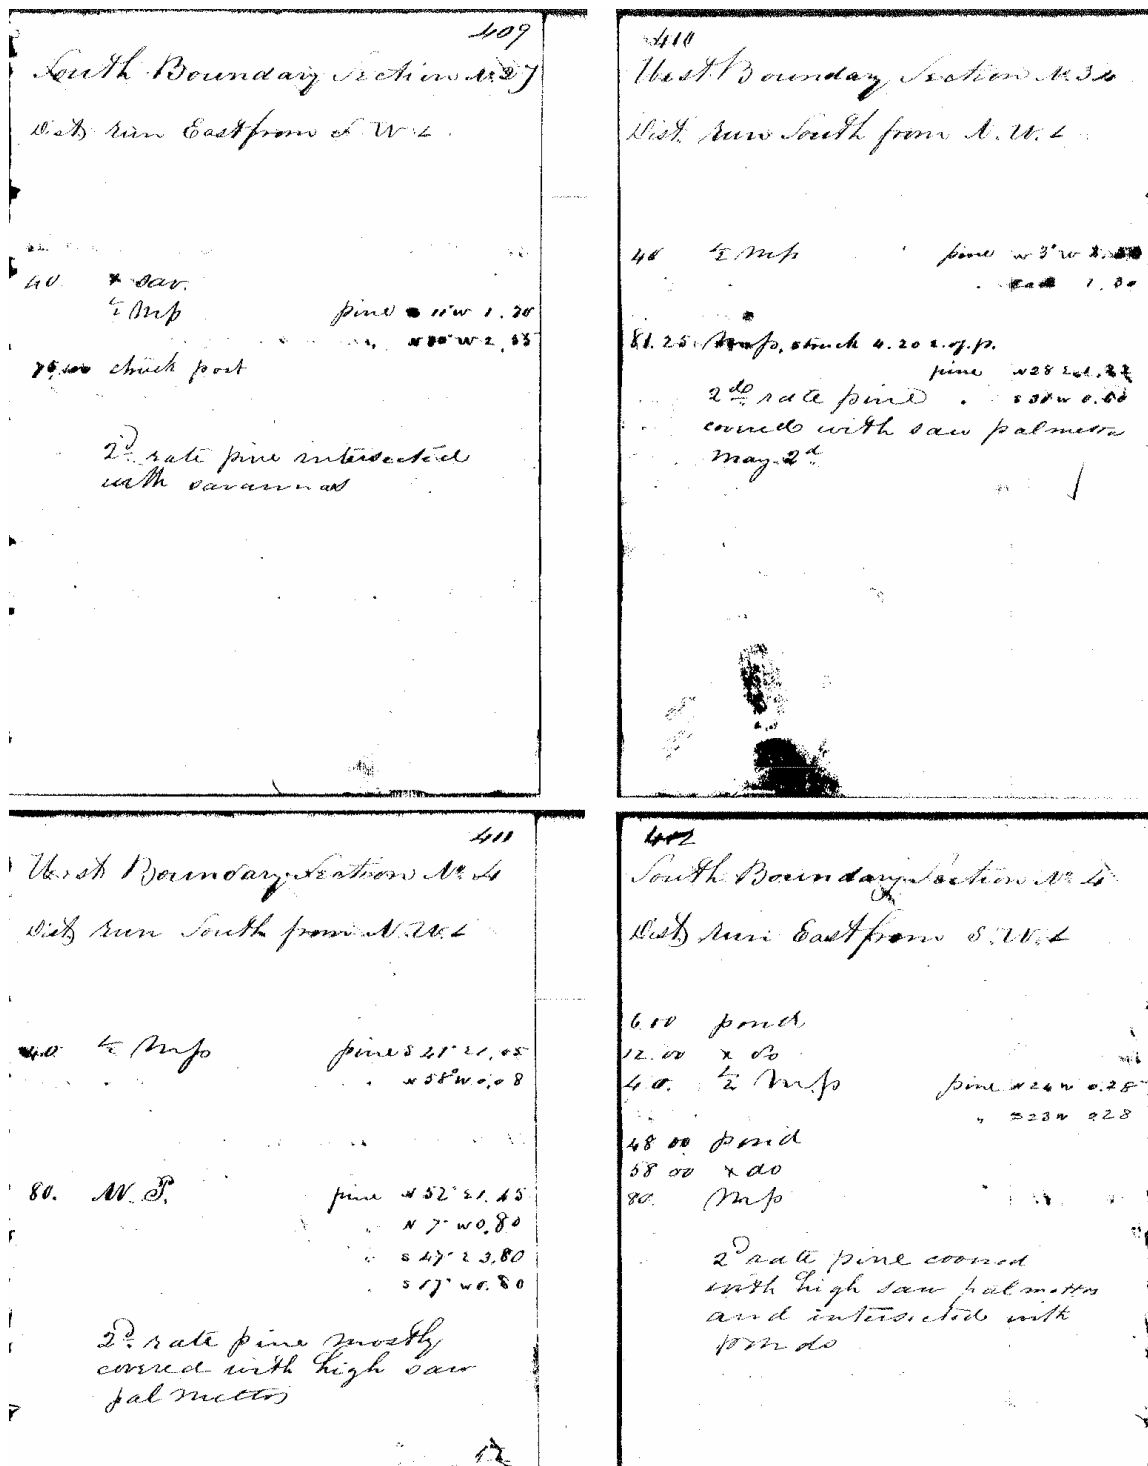 409
South Boundary Section No 27
Dist run East from S W c
40. x sav.
½ Mp pine 11° w 1.
" w 2,
struck post
2d rate pine intersected
with savannas
410
West Boundary Section No 34
Dist. run South from N. W. c
40 ½ Mp pine 3° w
" 1.
81.25 Mp, struck 4.20 E. of p.
pine N 28 E
2nd rate pine "
covered with saw palmetto
May 2d
411
West Boundary Section No 4
Dist run South from N. W. c
40 ½ Mp pine S 21° E 1,05
" N 58° W 0,08
80. M. P. pine N 52° E 1.45
" N 7° W 0.80
" S 47° E 3,80
S 17° W 0.80
2d rate pine mostly
covered with high saw
palmettos
412
South Boundary Section No 4
Dist run East from S. W. c
6.00 pond
12.00 x do
40. ½ Mp pine N 24 W 0.28
" S 23 W 028
48 00 pond
58 00 x do
80. Mp
2d rate pine covered
with high saw palmettos
and intersected with
ponds